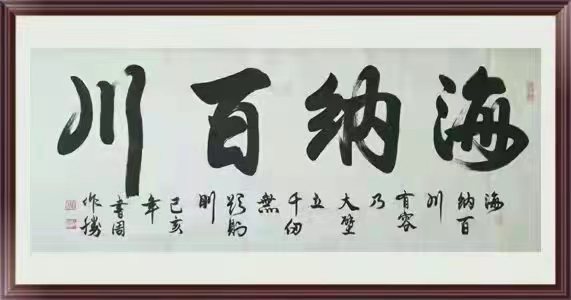 海纳百川
海
纳百
川
有容
乃
大壁
立
千仞
無
欲则
刚
己亥
年
書周
作勝